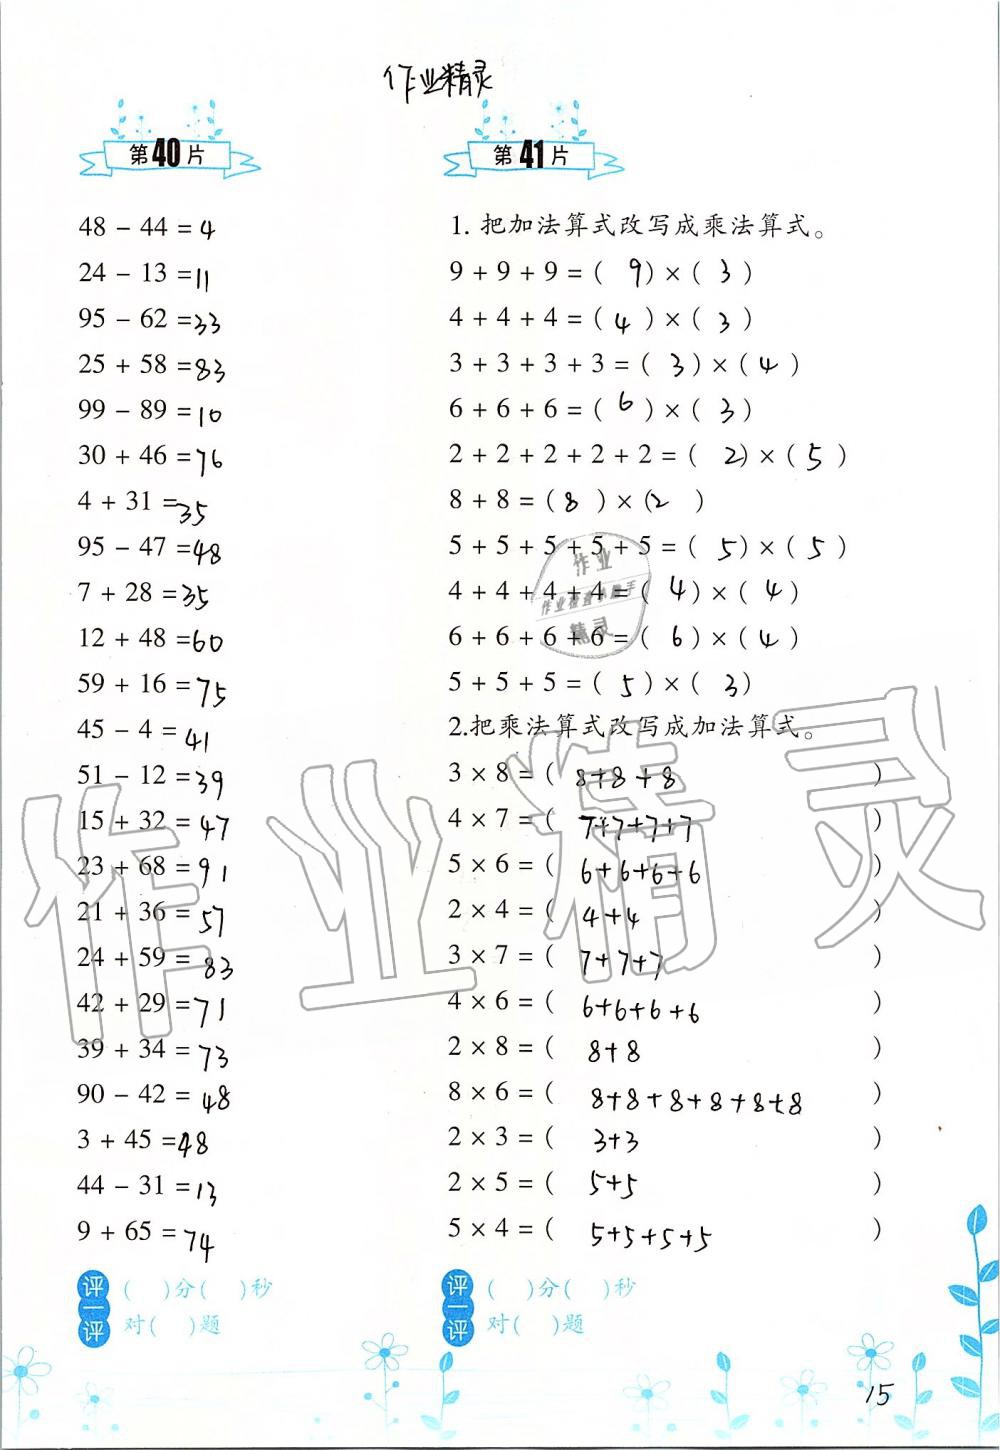 作业精灵
第40片
48 − 44 = 4
24 − 13 = 11
95 − 62 = 33
25 + 58 = 83
99 − 89 = 10
30 + 46 = 76
4 + 31 = 35
95 − 47 = 48
7 + 28 = 35
12 + 48 = 60
59 + 16 = 75
45 − 4 = 41
51 − 12 = 39
15 + 32 = 47
23 + 68 = 91
21 + 36 = 57
24 + 59 = 83
42 + 29 = 71
39 + 34 = 73
90 − 42 = 48
3 + 45 = 48
44 − 31 = 13
9 + 65 = 74
评一评
( )分( )秒
对( )题
第41片
1. 把加法算式改写成乘法算式。
9 + 9 + 9 = ( 9 ) × ( 3 )
4 + 4 + 4 = ( 4 ) × ( 3 )
3 + 3 + 3 + 3 = ( 3 ) × ( 4 )
6 + 6 + 6 = ( 6 ) × ( 3 )
2 + 2 + 2 + 2 + 2 = ( 2 ) × ( 5 )
8 + 8 = ( 8 ) × ( 2 )
5 + 5 + 5 + 5 + 5 = ( 5 ) × ( 5 )
4 + 4 + 4 + 4 = ( 4 ) × ( 4 )
6 + 6 + 6 + 6 = ( 6 ) × ( 4 )
5 + 5 + 5 = ( 5 ) × ( 3 )
2. 把乘法算式改写成加法算式。
3 × 8 = ( 8+8+8 )
4 × 7 = ( 7+7+7+7 )
5 × 6 = ( 6+6+6+6 )
2 × 4 = ( 4+4 )
3 × 7 = ( 7+7+7 )
4 × 6 = ( 6+6+6+6 )
2 × 8 = ( 8+8 )
8 × 6 = ( 8+8+8+8+8+8 )
2 × 3 = ( 3+3 )
2 × 5 = ( 5+5 )
5 × 4 = ( 5+5+5+5 )
评一评
( )分( )秒
对( )题
作业
作业检查小助手
精灵
作业精灵
15